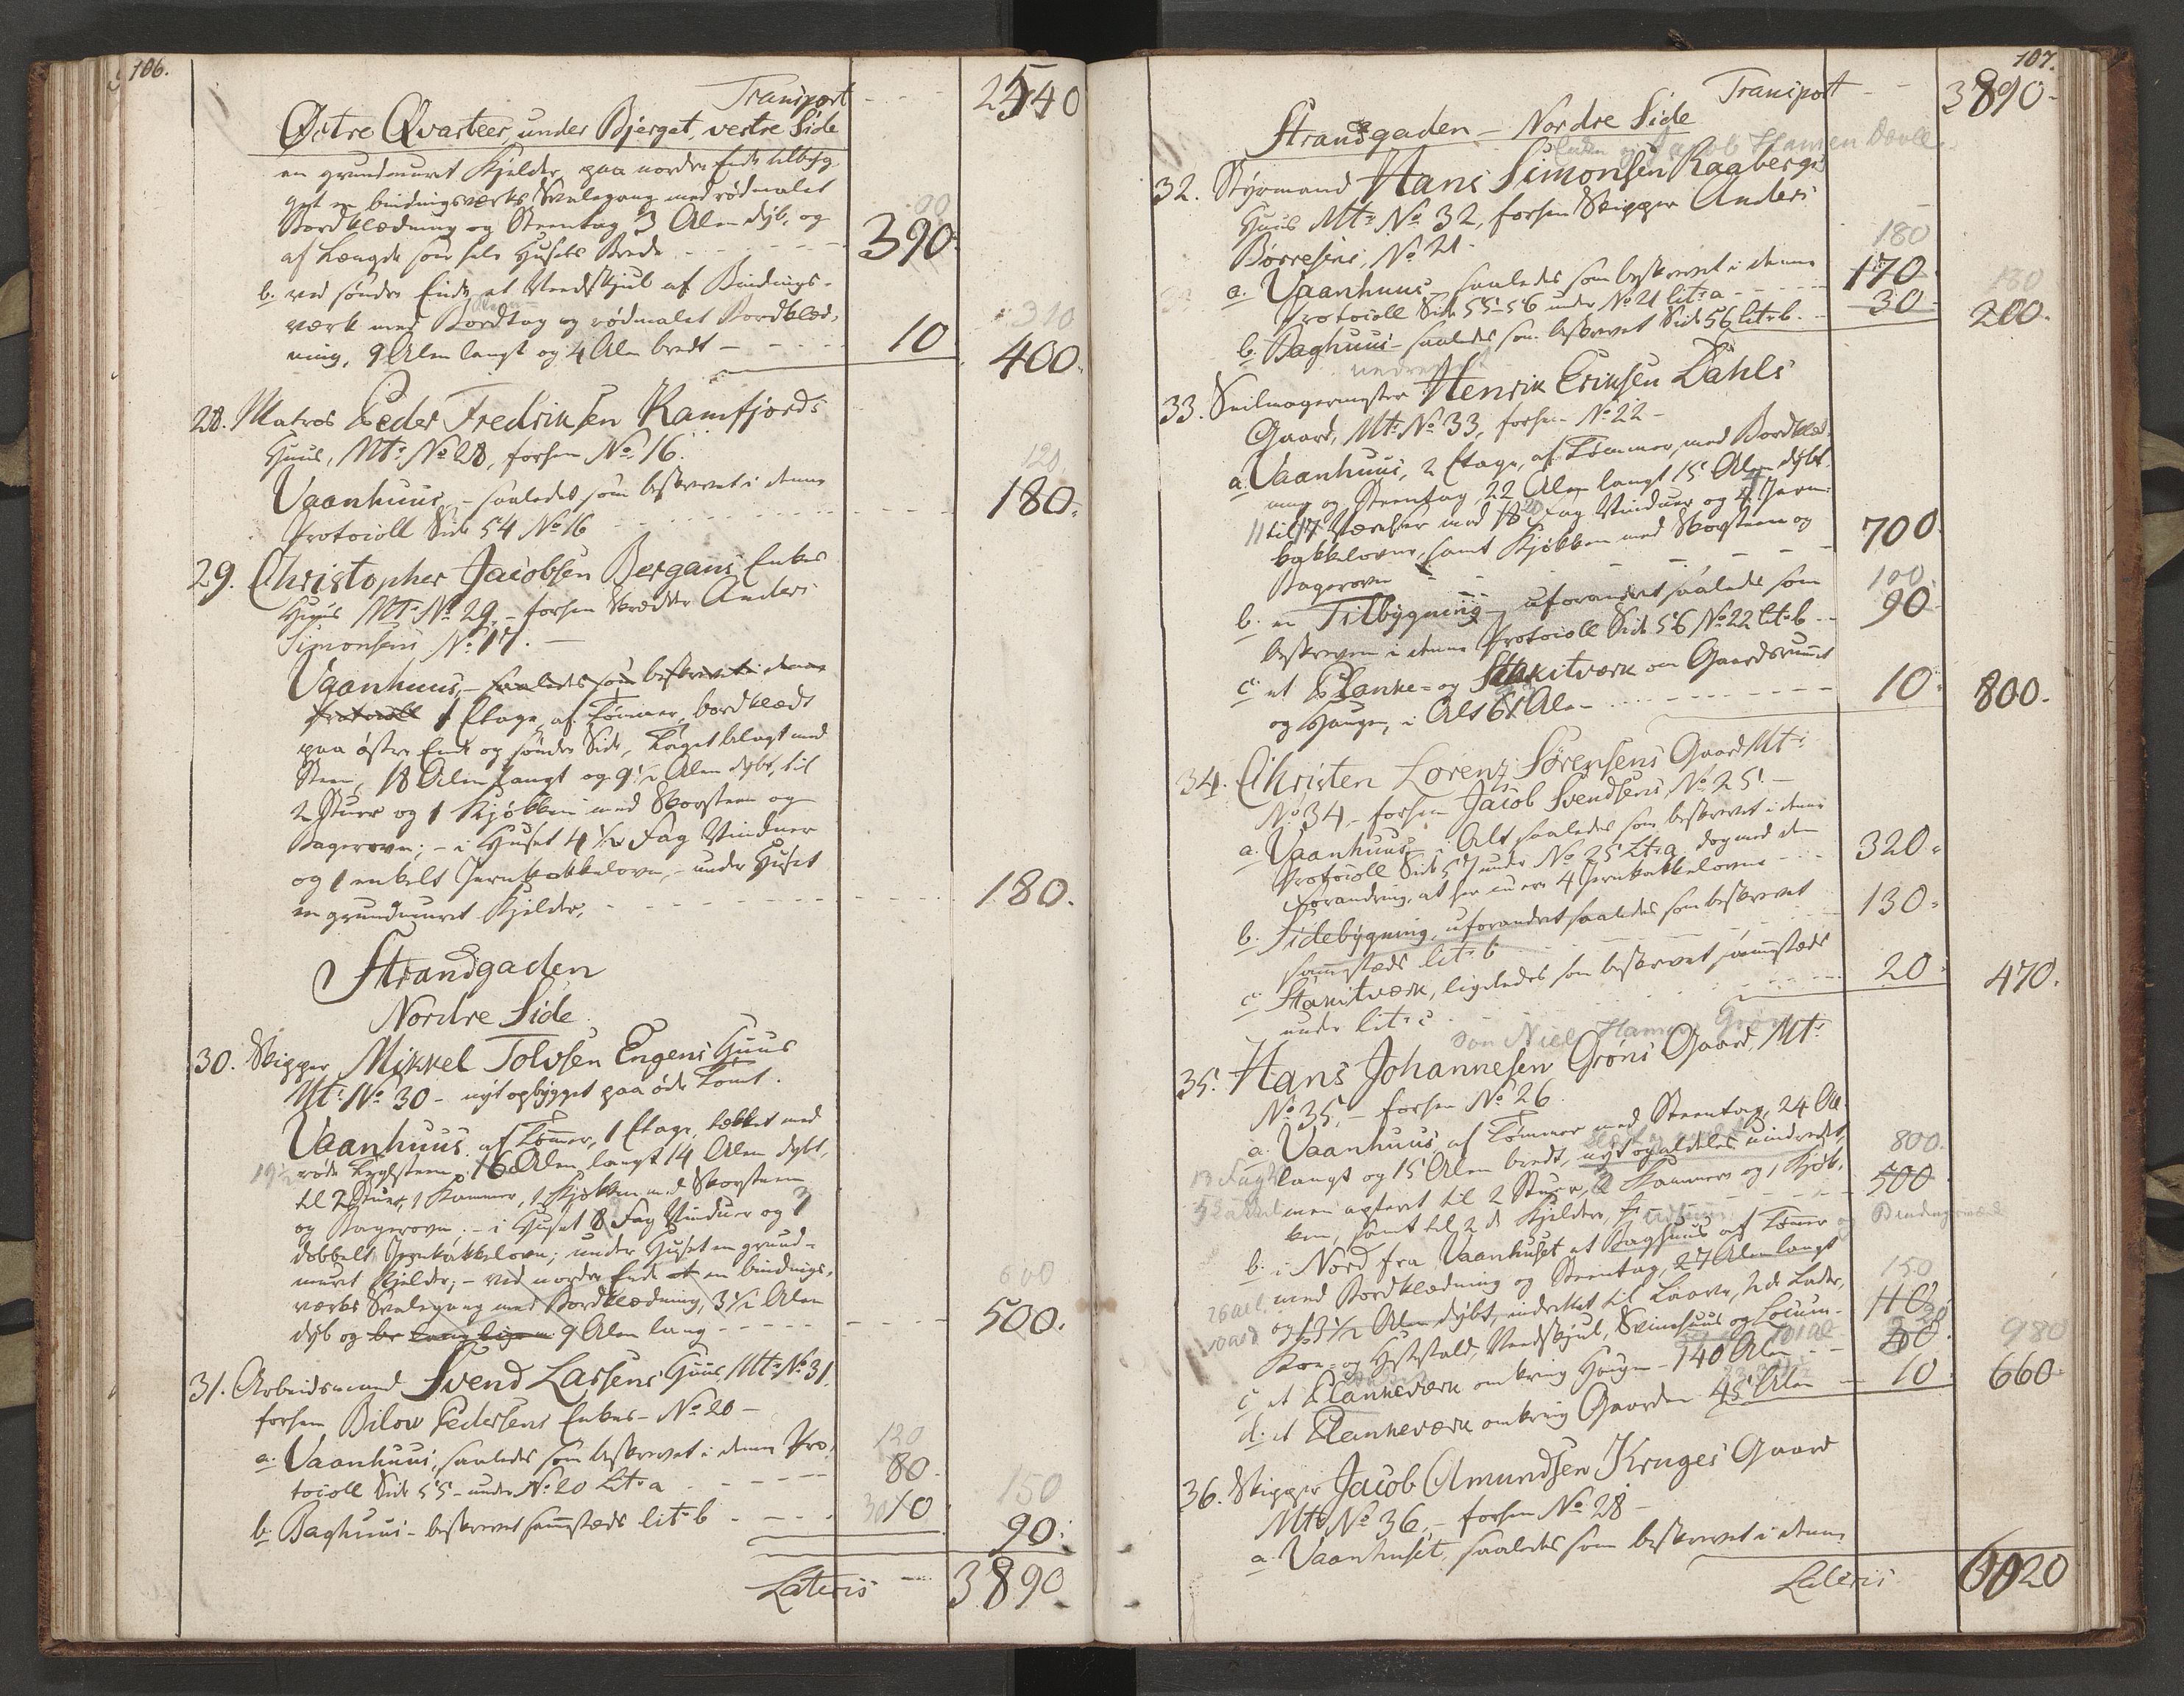 106.
Transport - - - 2540
Østre Qvarteer, under Bjerget, vestre Side
en grundmuret Kjelder, paa nordre Ende tilbyg-
get en bindingsværks Svalegang med rødmalet
Bordklædning og Steentag 3 Alen dyb, og
af Længde som hele Husets Brede - - - 390.
b. ved søndre Ende et Vedskjul af Bindings-
værk med Bordtag og rødmalet Bordklæd- 310
ning, 9 Alen langt og 4 Alen bredt - - - 10. 400.
28. Matros Peder Fredriksen Ramfjords
Huus, Mt: No 28, forhen No 16. 120.
Vaanhuus, - saaledes som beskrevet i denne
Protocoll Side 54 No 16 - - - 180.
29. Christopher Jacobsen Bergans Enkes
Huus Mt: No 29, - forhen Skrædder Anders
Simonsens No 17. -
Vaanhuus, - saaledes som beskrevet i denne
Protocoll 1 Etage, af Tømmer, bordklædt
paa østre Ende og søndre Side, Taget belagt med
Steen, 18 Alen langt og 9 1/2 Alen dybt, til
2 Stuer og 1 Kjøkken med Skorsteen og
Bagerovn; - i Huset 4 1/2 Fag Vinduer
og 1 enkelt Jernkakkelovn, - under Huset
en grundmuret Kjelder, - - - 180.
Strandgaden
Nordre Side
30. Skipper Mikkel Tolvsen Engens Huus
Mt: No 30 - nyt opbygget paa øde Tomt.
Vaanhuus af Tømmer, 1 Etage, tækket med
19 1/2 røde Tagsteen, 16 Alen langt 14 Alen dybt,
til 2 Stuer, 1 Kammer, 1 Kjøkken med Skorsteen
og Bagerovn. - i Huset 8 Fag Vinduer og 3
dobbelt Jernkakkelovn; under Huset en grund-
muret Kjelder; - ved nordre Ende et en bindings- 600
værks Svalegang med Bordklædning, 3 1/2 Alen
dyb og 9 Alen lang - - - 500.
31. Arbeidsmand Svend Larsens Huus, Mt: No 31.
forhen Bilow Pedersens Enkes - No 20 -
a. Vaanhuus, saaledes som beskrevet i denne Pro- 120
tocoll Side 55 - under No 20 Litr a - - - 80. 150
b. Baghuus - beskrevet sammesteds litr b - - - 30 10 90.
Lateris - - 3890

107.
Transport - - 3890.
Strandgaden - Nordre Side
Enken og Jacob Hansen
32. Styrmand Hans Simonsen Raabergs
Huus Mt: No 32, forhen Skipper Anders
Børresens, No 21. 180
a. Vaanhuus - saaledes som beskrevet i denne 170. 180
Protocoll Side 55-56 under No 21 Litr a - - - 30. 200.
b. Baghuus - saaledes som beskrevet Side 56 litr b. -
nedrevet
33. Seilmagermester Henrik Eriksen Dahls
Gaard, Mt: No 33, forhen No 22 -
a. Vaanhuus, 2 Etage, af Tømmer, med Bordklæd-
ning og Steentag, 22 Alen langt 15 Alen dybt,
11 til 17 Værelser med 18 Fag Vinduer og 4 Jern-
kakkelovne, samt Kjøkken med Skorsteen og
Bagerovn - - - 700.
b. en Tilbygning, uforandret saaledes som 100
beskreven i denne Protocoll Side 56 No 22 litr b - - 90.
c. et Planke- og Stakitværk om Gaardsrummet
og Haugen, i Alt 61 Alen - - - 10. 800.
34. Christen Lorenz Sørensens Gaard Mt:
No 34 - forhen Jacob Svendsens, No 25. -
a. Vaanhuus, i Alt saaledes som beskrevet i denne
Protocoll Side 57 under No 25 Litr a, dog med den
Forandring, at her nu ere 4 Jernkakkelovne - - - 320.
b. Sidebygning, uforandret saaledes som beskrevet
sammesteds litr b - - - 130.
c. Stakitværk, ligeledes som beskrevet sammesteds
under litr c - - - 20. 470.
Søn Niels Hansen Grøn
35. Hans Johannesen Grøns Gaard, Mt:
No 35, - forhen No 26.
a. Vaanhuus af Tømmer med Steentag, 24 Al.
13 Fag langt og 15 Alen bredt, nyt og aldeles uindredt, 800.
men apteret til 2 Stuer, 2 Kammer og 1 Kjøk- 500
ken, samt til 2de Kjelder,
b. i Nord fra Vaanhuset et Baghuus af Tømmer og Bindingsværk
med Bordklædning og Steentag, 27 Alen langt 150
og 13 1/2 Alen dybt, indrettet til Laave, 2de Lader, 110.
Koe- og Hestestald, Vedskjul, Sviinehuus og Locum.
c. et Plankeværk omkring Haugen - 140 Alen - - 20. 980
d. et Plankeværk omkring Gaarden 45 Alen - 10. 660.
36. Skipper Jacob Amundsen Kruges Gaard
Mt: No 36, - forhen No 28 -
a. Vaanhuset, saaledes som beskrevet i denne
Lateris 6020